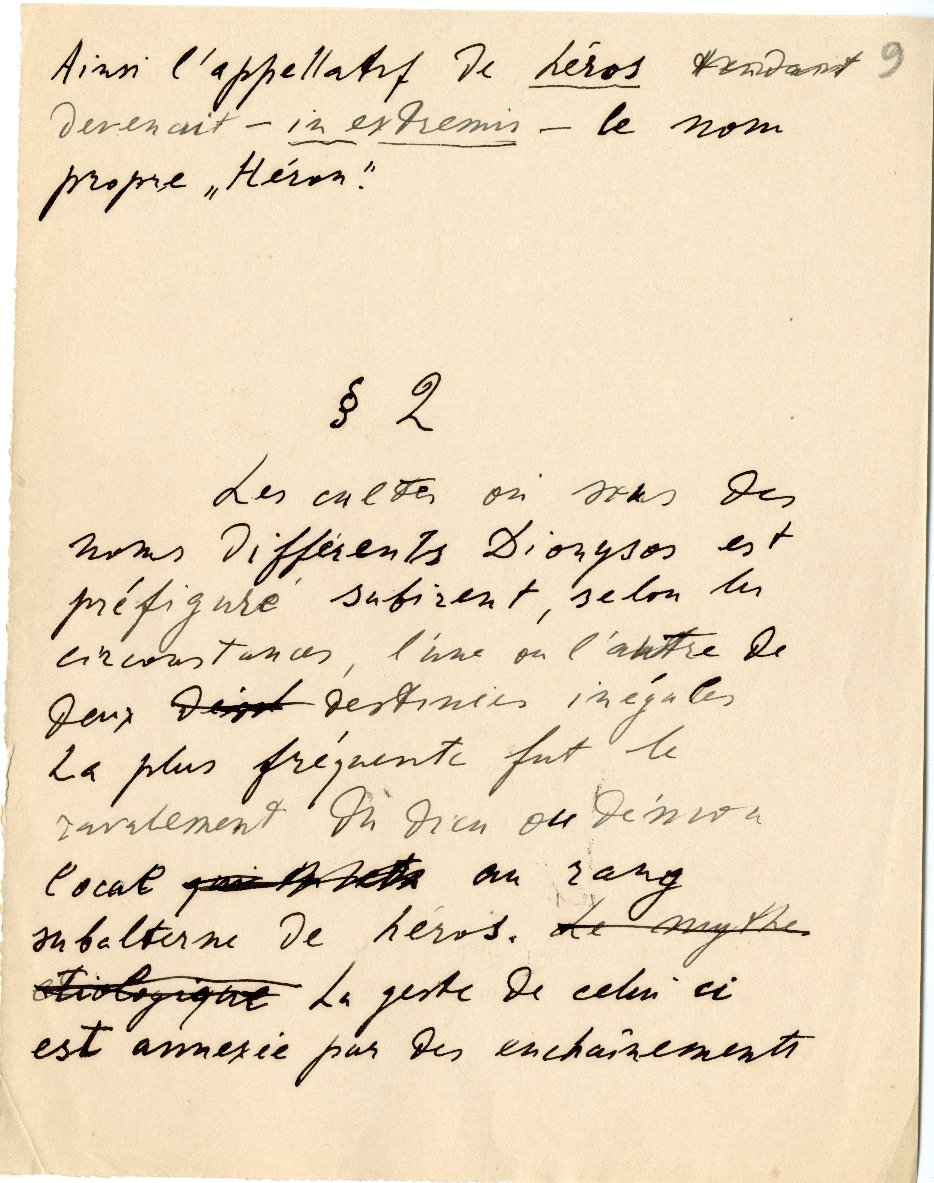 Ainsi l'appellatif de héros tendant 9
devenait – in extremis – le nom
propre „Héron."
§ 2
Les cultes où sous des
noms différents Dionysos est
préfiguré subirent, selon les
circonstances, l'une ou l'autre de
deux destinées inégales
La plus fréquente fut le
ravalement du dieu ou démon
local au rang
subalterne de héros. Le mythe
étiologique La geste de celui ci
est annexée par des enchaînements